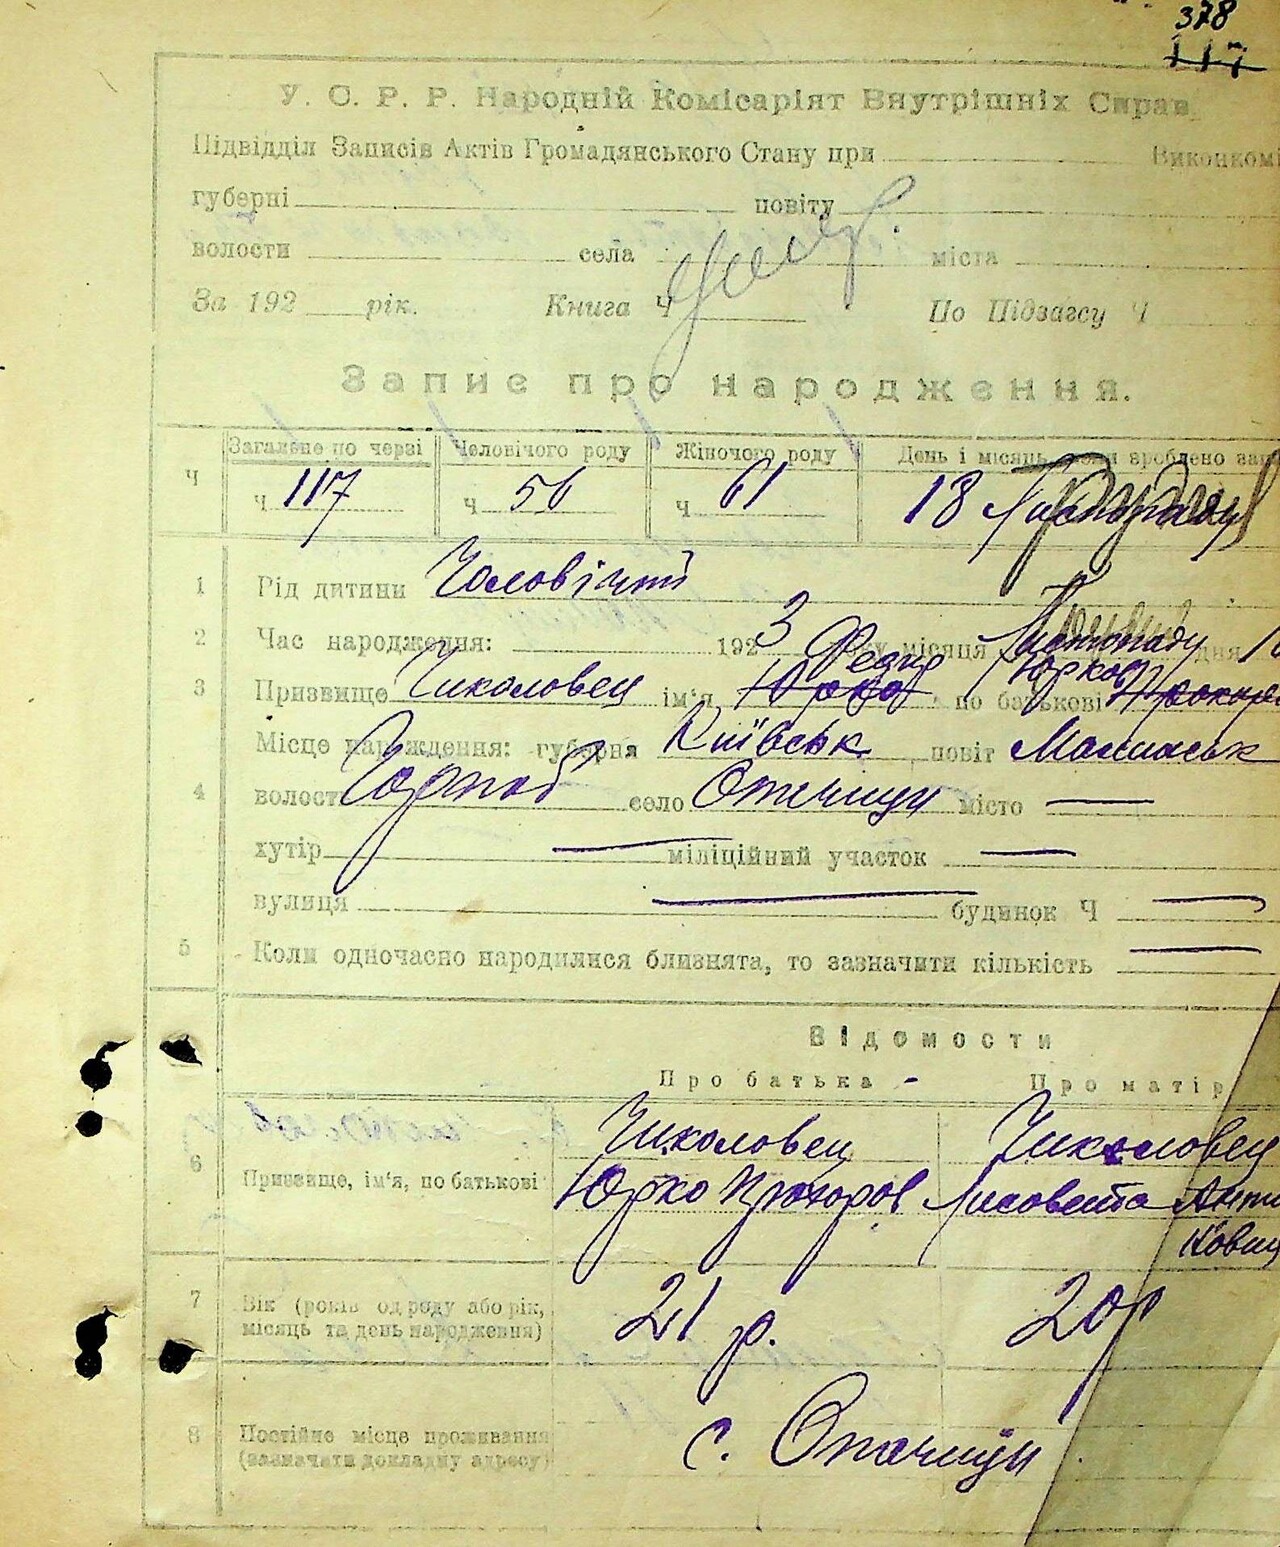 378
117
У. С. Р. Р. Народній Комісаріят Внутрішніх Справ
Підвідділ Записів Актів Громадянського Стану при Виконкомі
губерні повіту
волости села міста
За 192 рік. Книга Ч По Підзагсу Ч
Запис про народження.
Загальне по черзі Чоловічого роду Жіночого роду День і місяць, коли зроблено запи
Ч Ч 117 Ч 56 Ч 61 18 Листопаду
1 Рід дитини Чоловічий
2 Час народження: 1923 року місяця Листопаду дня
Федір Юрков
3 Призвище Чиколовец ім'я Юрко по батькові Прохоров
Місце народження: губерня Київськ повіт Малинськ
4 волость Чорноб село Опачичи місто —
хутір — міліційний участок —
вулиця — будинок Ч —
5 Коли одночасно народилися близнята, то зазначити кількість —
Відомости
Про батька - Про матір
Чиколовец Чиколовец
6 Призвище, ім'я, по батькові Юрко Прохоров Лисовета
7 Вік (років од роду або рік, місяць та день народження) 21 р. 20 р
8 Постійне місце проживання (зазначити докладну адресу) с. Опачичи